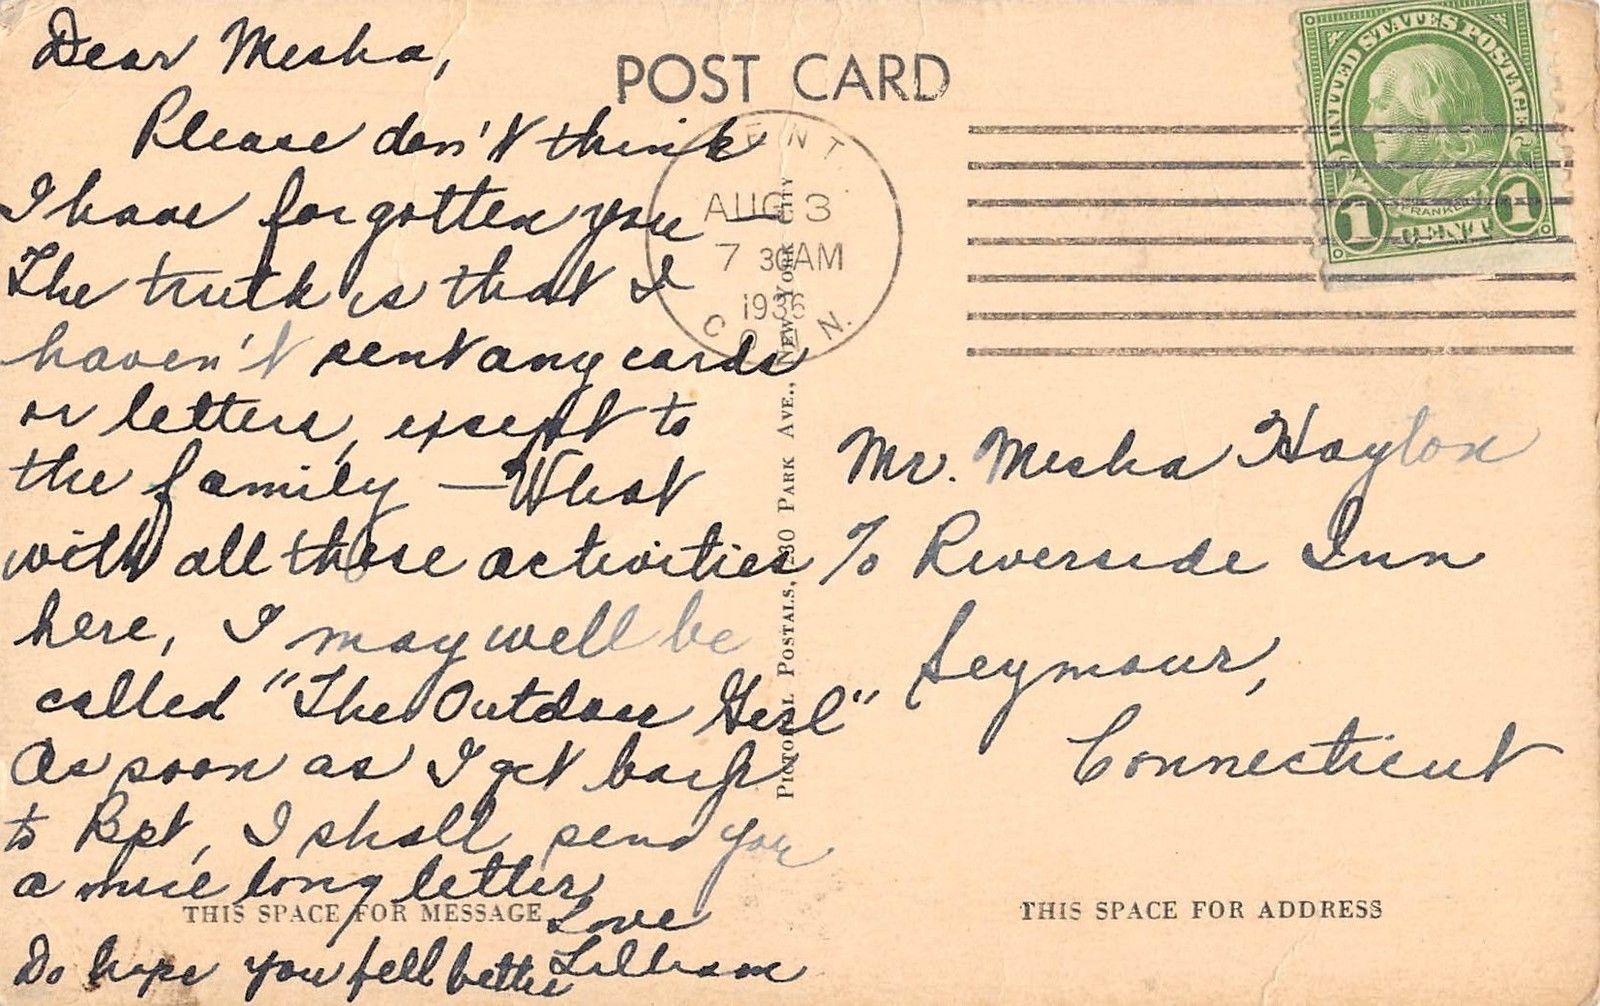 Dear Mesha,
Please don't think
I have forgotten you —
The truth is that I
haven't sent any cards
or letters, except to
the family — What
with all these activities
here, I may well be
called "The Outdoor Girl"
As soon as I get back
to Bpt, I shall send you
a nice long letter
Love
Lillian
Do hope you fell better
THIS SPACE FOR MESSAGE
POST CARD
KENT.
AUG 3
7 30AM
1936
CONN.
UNITED STATES POSTAGE
FRANKLIN
1 CENT 1
PICTORIAL POSTALS, 230 PARK AVE., NEW YORK CITY
Mr. Mesha Hayton
% Riverside Inn
Seymour,
Connecticut
THIS SPACE FOR ADDRESS